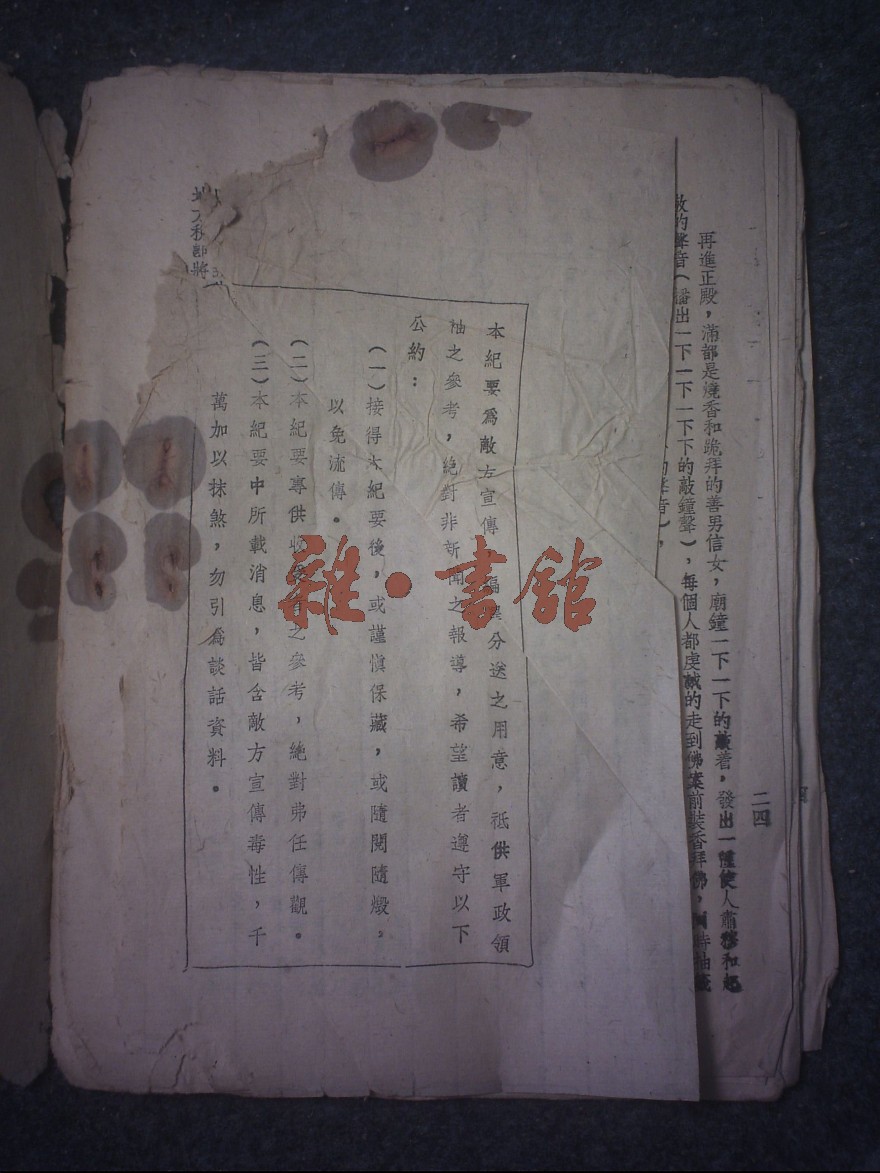 再進正殿，滿都是燒香和跪拜的善男信女，廟鐘一下一下的敲着，發出一種使人肅穆和起
敬的聲音（播出一下一下一下下的敲鐘聲），每個人都虔誠的走到佛案前裝香拜佛，
二四
本紀要爲敵方宣傳 編 分送之用意，祇供軍政領
袖之參考，絕對非新聞之報導，希望讀者遵守以下
公約：
（一）接得本紀要後，或謹愼保藏，或隨閱隨燬，
以免流傳。
（二）本紀要專供收 者之參考，絕對弗任傳觀。
（三）本紀要中所載消息，皆含敵方宣傳毒性，千
萬加以抹煞，勿引爲談話資料。
雜·書館